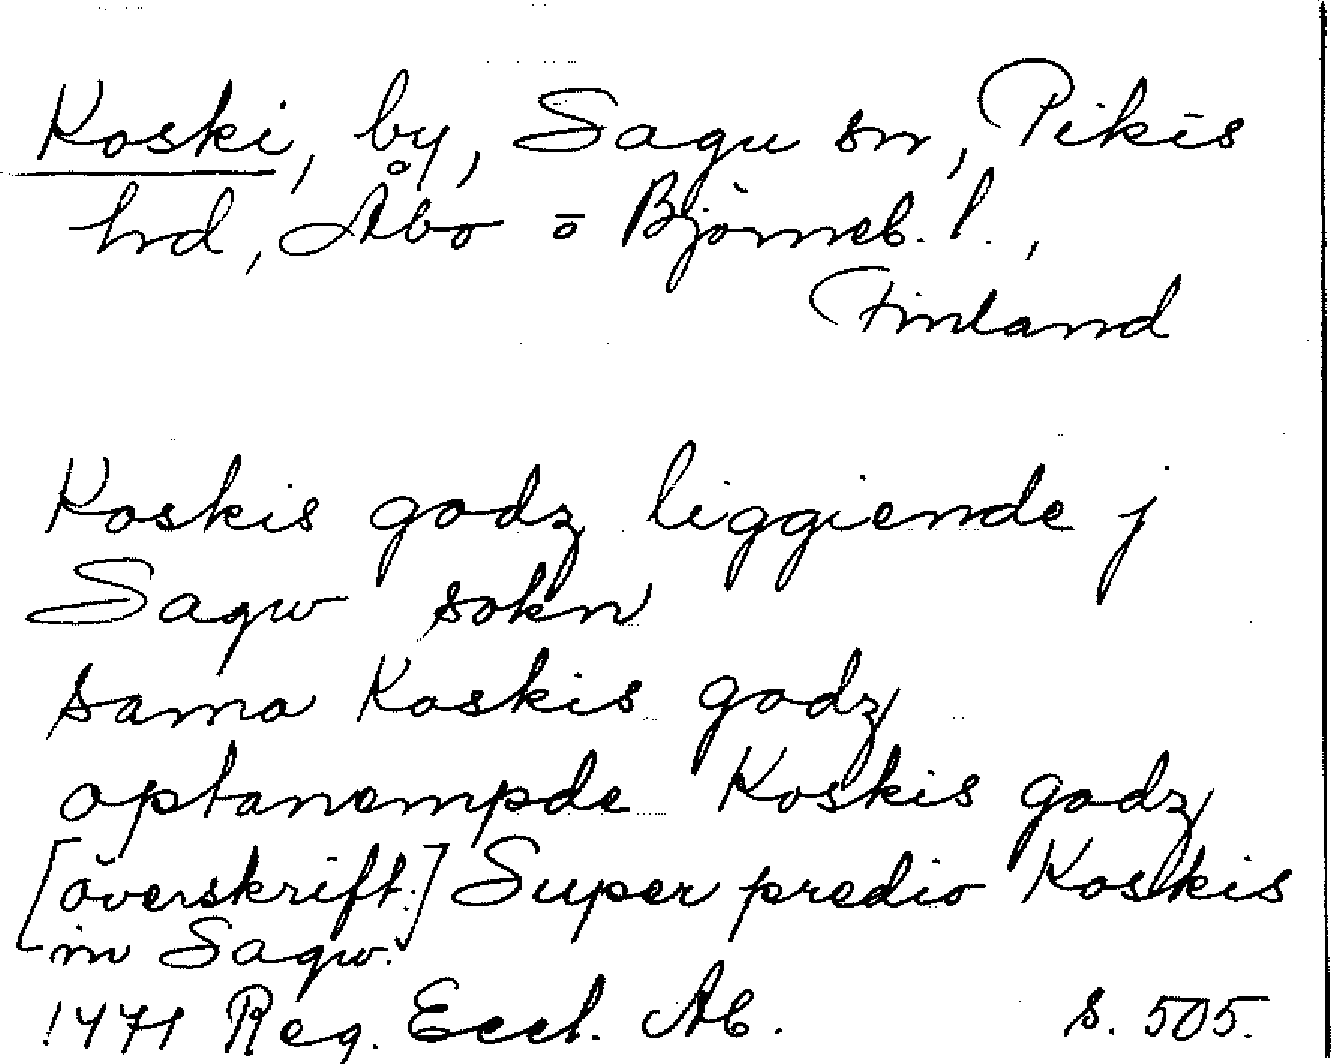 Koski, by, Sagu sn, Pikis
hrd, Åbo o Björneb. l.,
Finland
Koskis godz liggiende j
Sagw sokn
sama Koskis godz
optanempde Koskis godz
[överskrift:] Super predio Koskis
in Sagw.
1471 Reg. Eccl. Ab. s. 505.